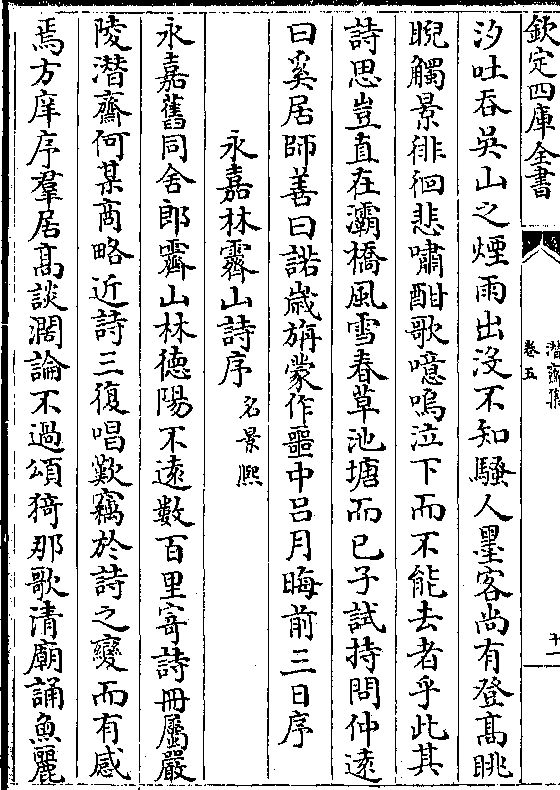 欽定四庫全書
潛齋集
卷五
十一
汐吐吞吳山之煙雨出没不知騷人墨客尚有登髙眺
睨觸景徘徊悲嘯酣歌噫嗚泣下而不能去者乎此其
詩思豈直在灞橋風雪春草池塘而已子試持問仲逺
曰奚居師善曰諾歲旃蒙作噩中吕月晦前三日序
永嘉林霽山詩序名景熙
永嘉舊同舍郎霽山林德陽不逺數百里寄詩冊屬嚴
陵潛齋何某商略近詩三復唱歎竊於詩之變而有感
焉方庠序羣居髙談濶論不過頌猗那歌清廟誦魚麗